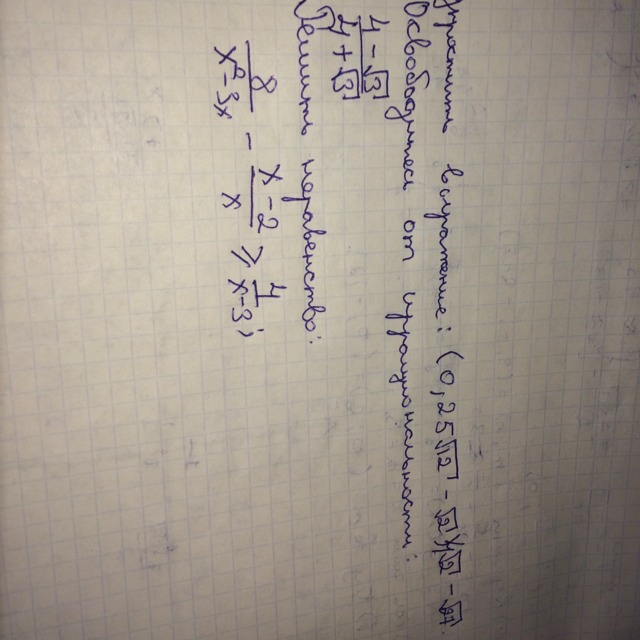 Упростить выражение: (0,25√12 - √2)√2 - √
Освободитесь от иррациональности:
4-√3 / 4+√3
Решить неравенство:
8/(x²-3x) - (x-2)/x ≥ 4/(x-3);